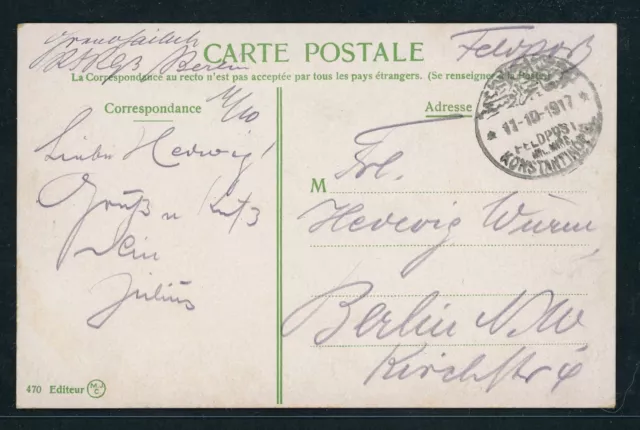 CARTE POSTALE
Feldpost
Berlin
La Correspondance au recto n'est pas acceptée par tous les pays étrangers. (Se renseigner à la Poste)
Correspondance
11/10
Adresse
11-10-1917
FELDPOST
KONSTANTINOPEL
Liebe Hedwig!
Gruß u Kuß
Dein
Julius
M
Frl.
Hedwig Wurm
Berlin N.W.
Kirchstr 6
470 Editeur